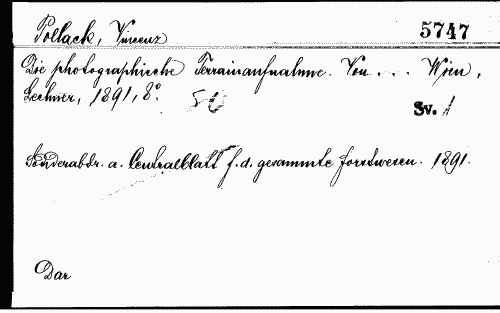 Pollack, Vincenz 5747
Die photographische Terrainaufnahme. Von . . . Wien,
Lechner, 1891, 8°. 50 Sv. A
Sonderabdr. a. Centralblatt f. d. gesammte Forstwesen. 1891.
Dar